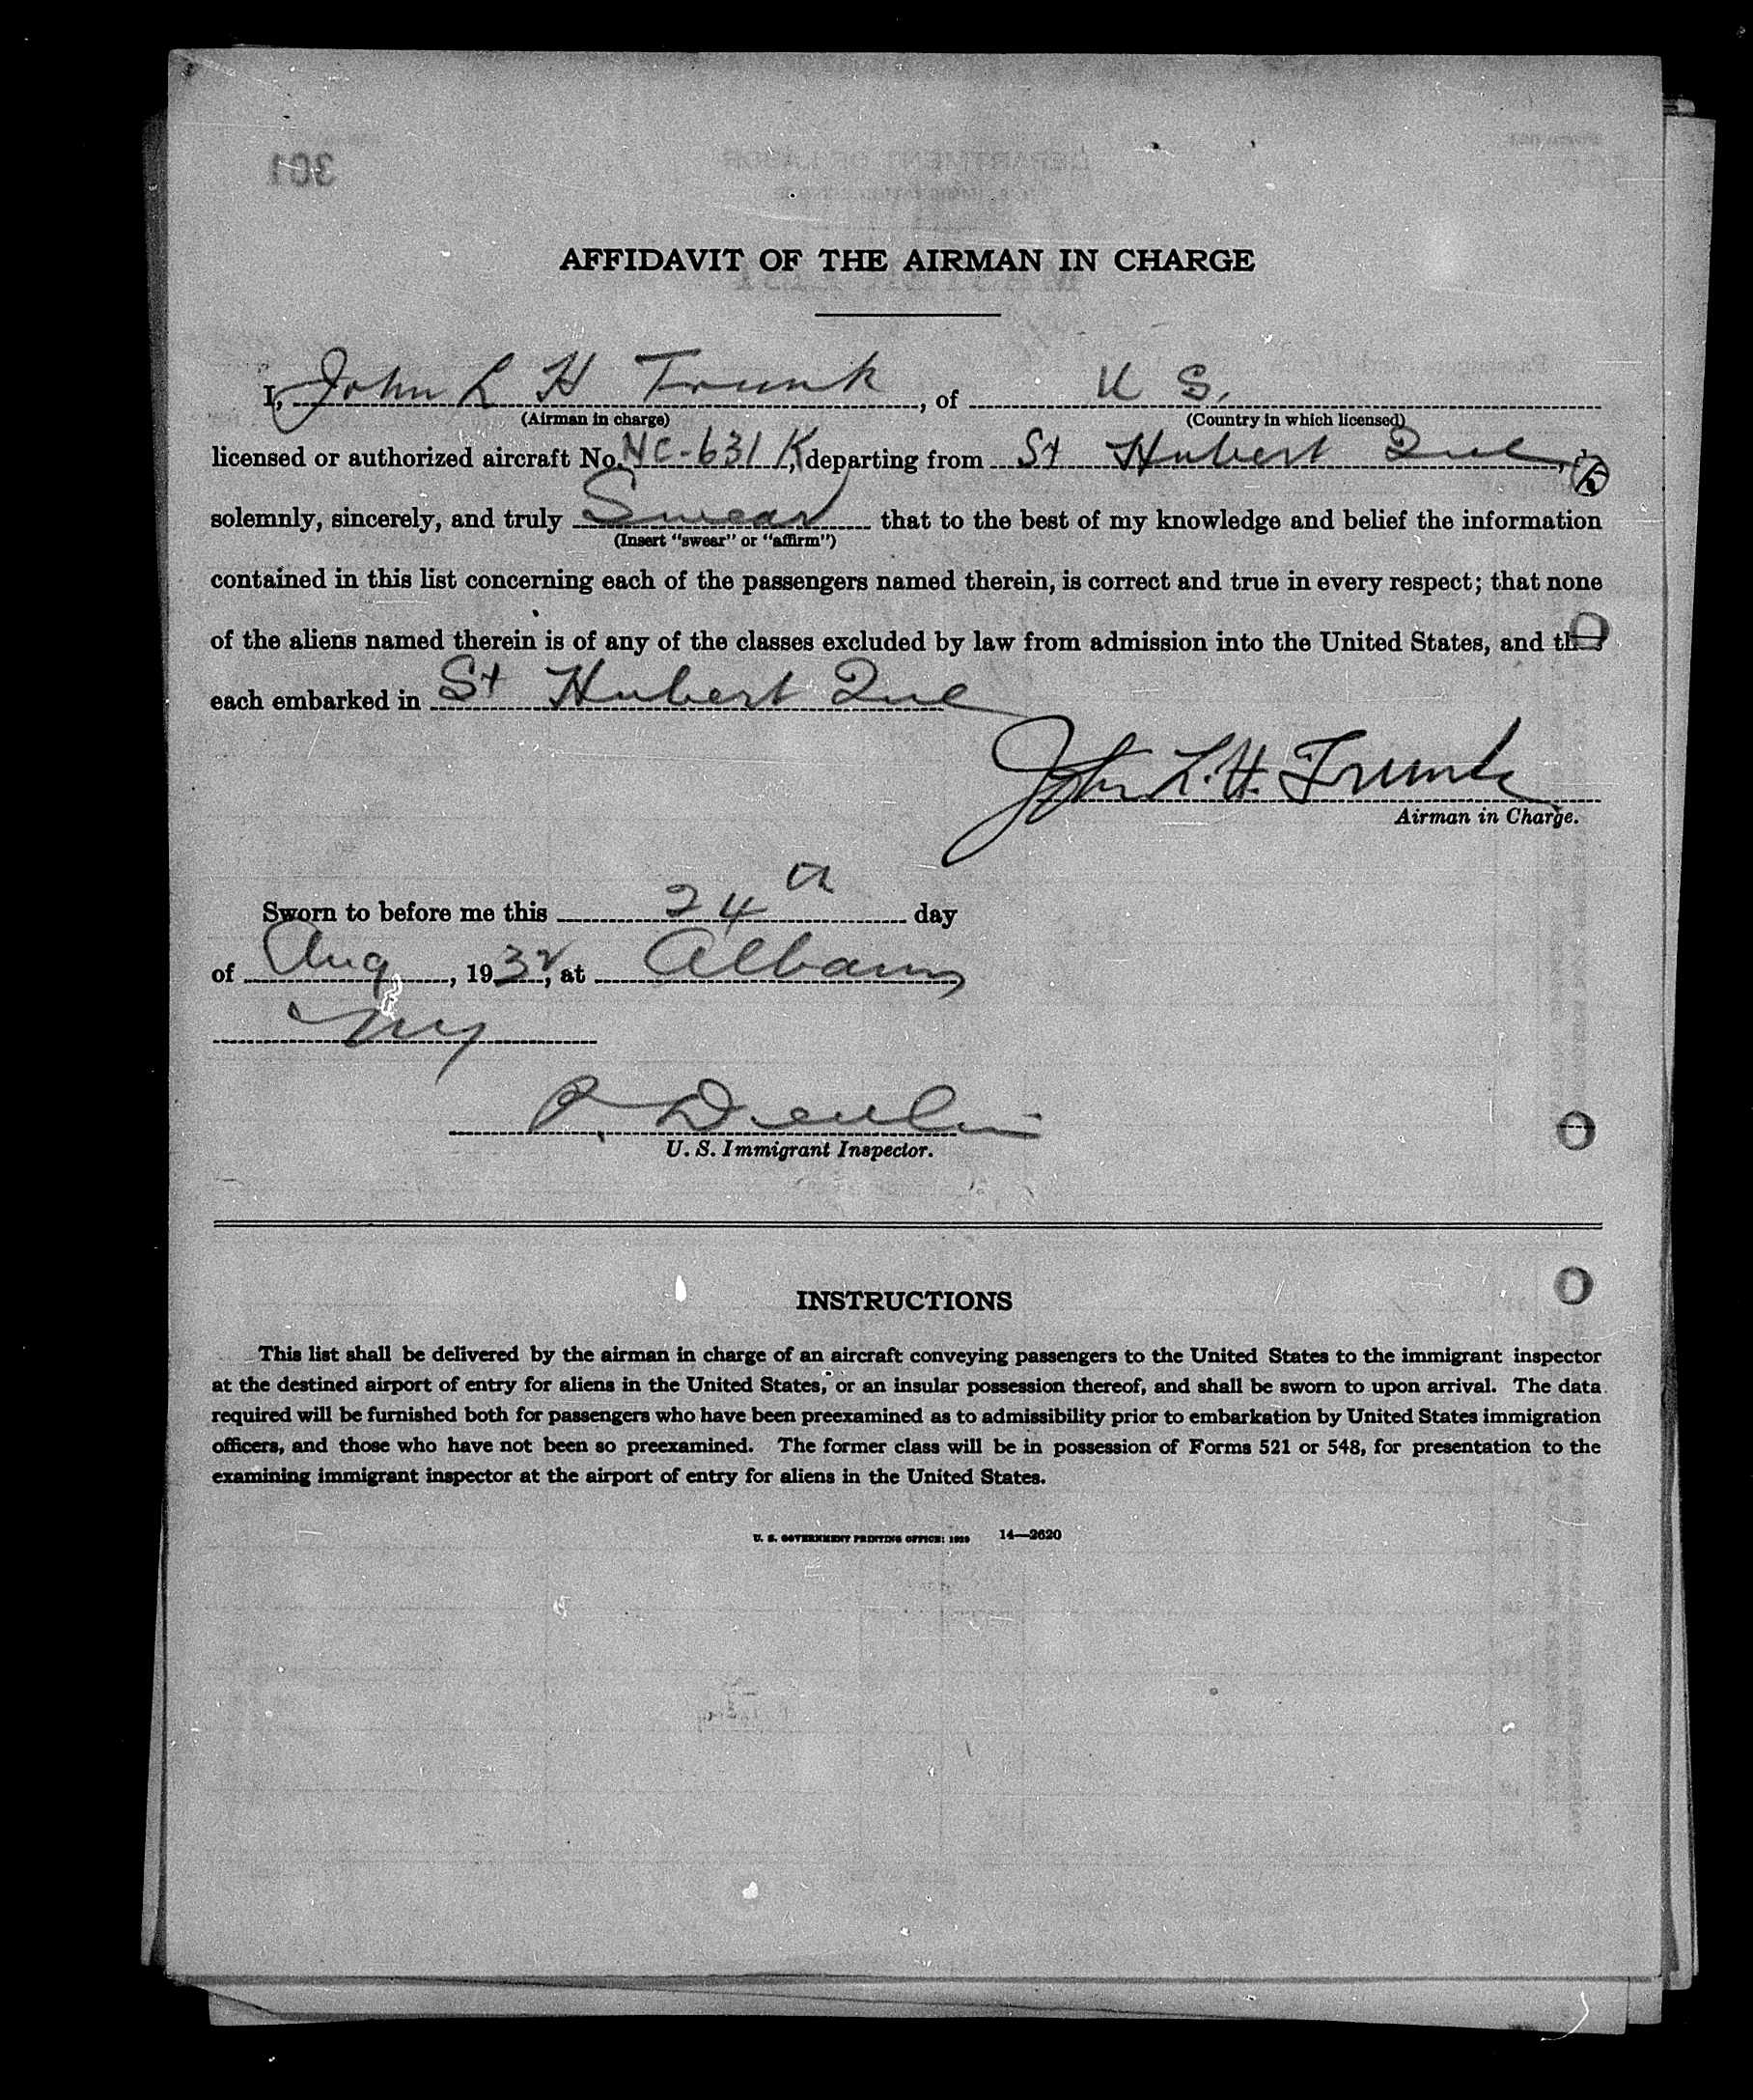 AFFIDAVIT OF THE AIRMAN IN CHARGE
I, John L H Trunk, of U S.
(Airman in charge) (Country in which licensed)
licensed or authorized aircraft No. NC-631K, departing from St Hubert Que,
solemnly, sincerely, and truly Swear that to the best of my knowledge and belief the information
(Insert "swear" or "affirm")
contained in this list concerning each of the passengers named therein, is correct and true in every respect; that none
of the aliens named therein is of any of the classes excluded by law from admission into the United States, and
each embarked in St Hubert Que
John L. H. Trunk
Airman in Charge.
Sworn to before me this 24th day
of Aug, 1932, at Albany
NY
U. S. Immigrant Inspector.
INSTRUCTIONS
This list shall be delivered by the airman in charge of an aircraft conveying passengers to the United States to the immigrant inspector
at the destined airport of entry for aliens in the United States, or an insular possession thereof, and shall be sworn to upon arrival. The data
required will be furnished both for passengers who have been preexamined as to admissibility prior to embarkation by United States immigration
officers, and those who have not been so preexamined. The former class will be in possession of Forms 521 or 548, for presentation to the
examining immigrant inspector at the airport of entry for aliens in the United States.
U. S. GOVERNMENT PRINTING OFFICE: 1929 14—2620